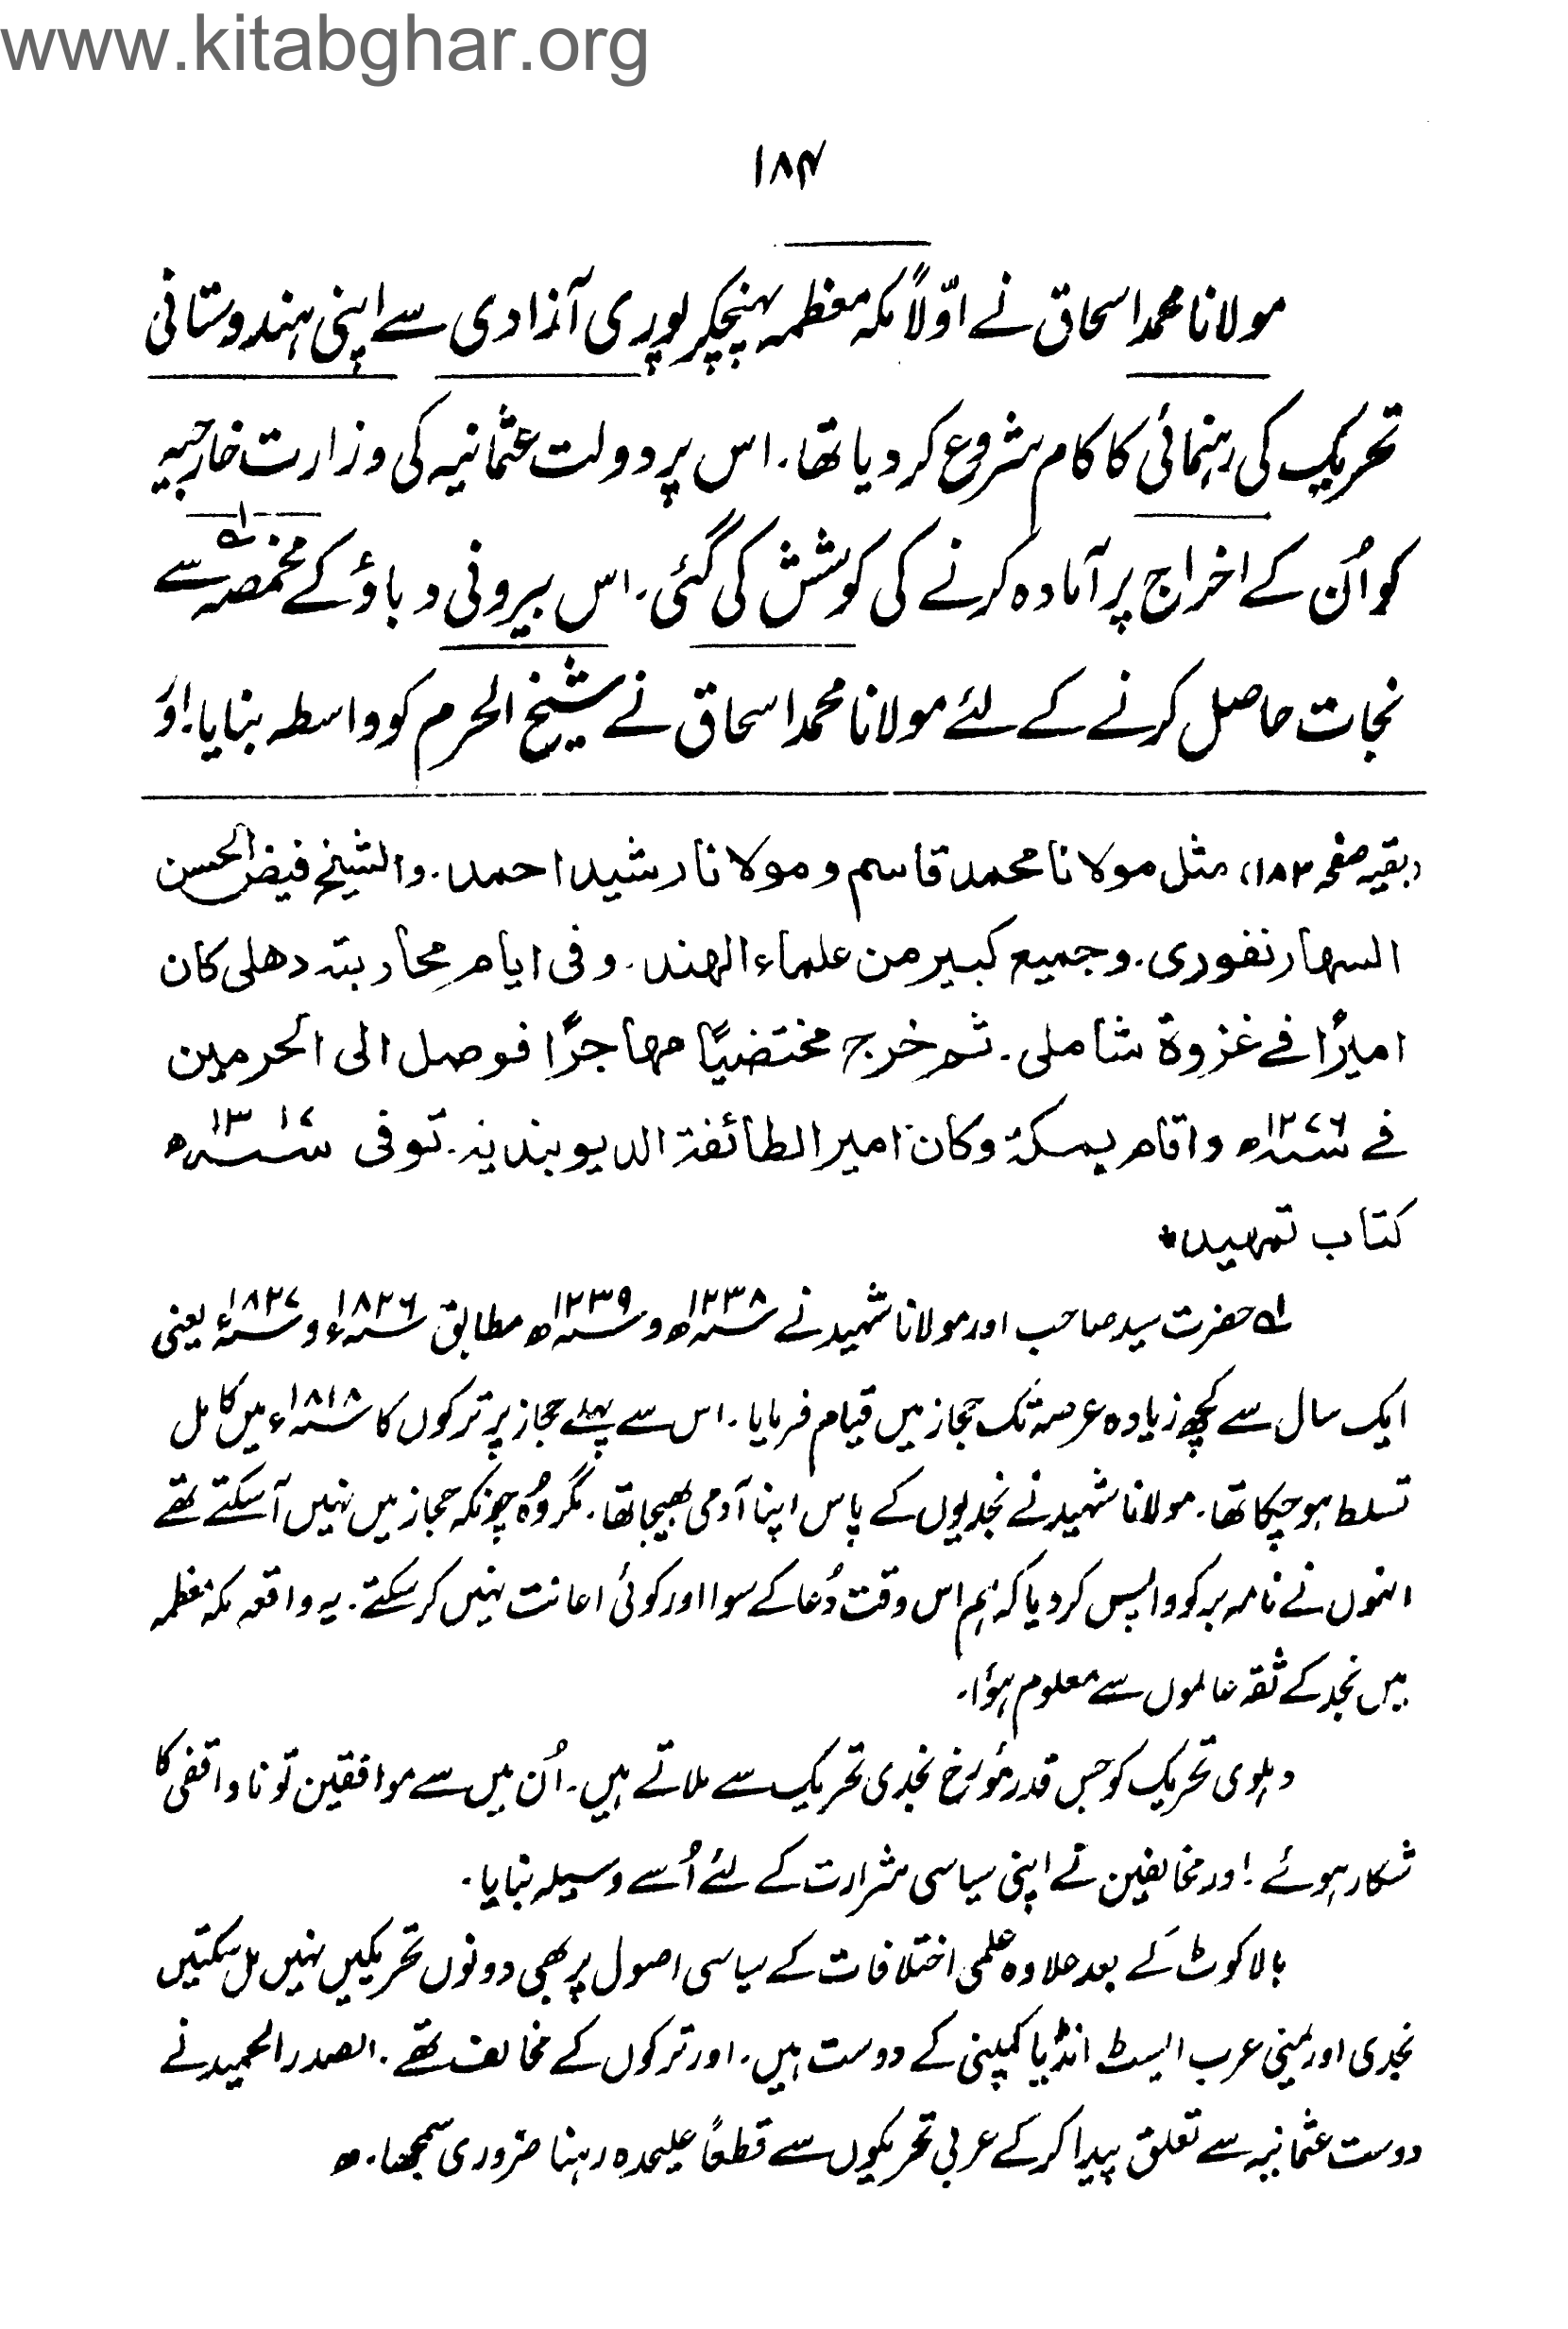 www.kitabghar.org
۱۸۴
مولانا محمد اسحاق نے اوّلاً مکہ معظمہ پہنچکر پوری آزادی سے اپنی ہندوستانی
تحریک کی رہنمائی کا کام شروع کر دیا تھا۔ اس پر دولت عثمانیہ کی وزارت خارجیہ
کو اُن کے اخراج پر آمادہ کرنے کی کوشش کی گئی۔ اس بیرونی دباؤ کے مخمصہ۱ سے
نجات حاصل کرنے کے لئے مولانا محمد اسحاق نے شیخ الحرم کو واسطہ بنایا۔ اور
(بقیہ صفحہ ۱۸۳) مثل مولانا محمد قاسم و مولانا رشید احمد۔ والشیخ فیض الحسن
السہارنفوری۔ وجمیع کبیر من علماء الھند۔ وفی ایام محاربتہ دھلی کان
امیرًا فے غزوۃ شاملی۔ ثم خرج مختضیًا مھاجرًا فوصل الی الحرمین
فے سنہ ۱۲۷۶ھ واقام بمکۃ وکان امیر الطائفۃ الدیوبندیۃ۔ توفی سنہ ۱۳۱۷ھ
کتاب تمھید*
۱ حضرت سید صاحب اور مولانا شہید نے سنہ ۱۲۳۸ھ و سنہ ۱۲۳۹ھ مطابق سنہ ۱۸۲۶ء و سنہ ۱۸۲۷ء یعنی
ایک سال سے کچھ زیادہ عرصہ تک حجاز میں قیام فرمایا۔ اس سے پہلے حجاز پر ترکوں کا سنہ ۱۸۱۸ء میں کامل
تسلط ہو چکا تھا۔ مولانا شہید نے نجدیوں کے پاس اپنا آدمی بھیجا تھا۔ مگر وُہ چونکہ حجاز میں نہیں آ سکتے تھے
انہوں نے نامہ بر کو واپس کر دیا کہ ہم اس وقت دُعا کے سوا اور کوئی اعانت نہیں کر سکتے۔ یہ واقعہ مکہ معظمہ
میں نجد کے ثقہ عالموں سے معلوم ہوُا۔
دہلوی تحریک کو جس قدر مؤرخ نجدی تحریک سے ملاتے ہیں۔ اُن میں سے موافقین تو ناواقفی کا
شکار ہوئے۔ اور مخالفین نے اپنی سیاسی شرارت کے لئے اُسے وسیلہ بنایا۔
بالاکوٹ کے بعد علاوہ علمی اختلافات کے سیاسی اصول پر بھی دونوں تحریکیں نہیں مل سکتیں
نجدی اور یمنی عرب ایسٹ انڈیا کمپنی کے دوست ہیں۔ اور ترکوں کے مخالف تھے۔ الصدر الحمید نے
دوست عثمانیہ سے تعلق پیدا کر کے عربی تحریکوں سے قطعاً علیحدہ رہنا ضروری سمجھا۔